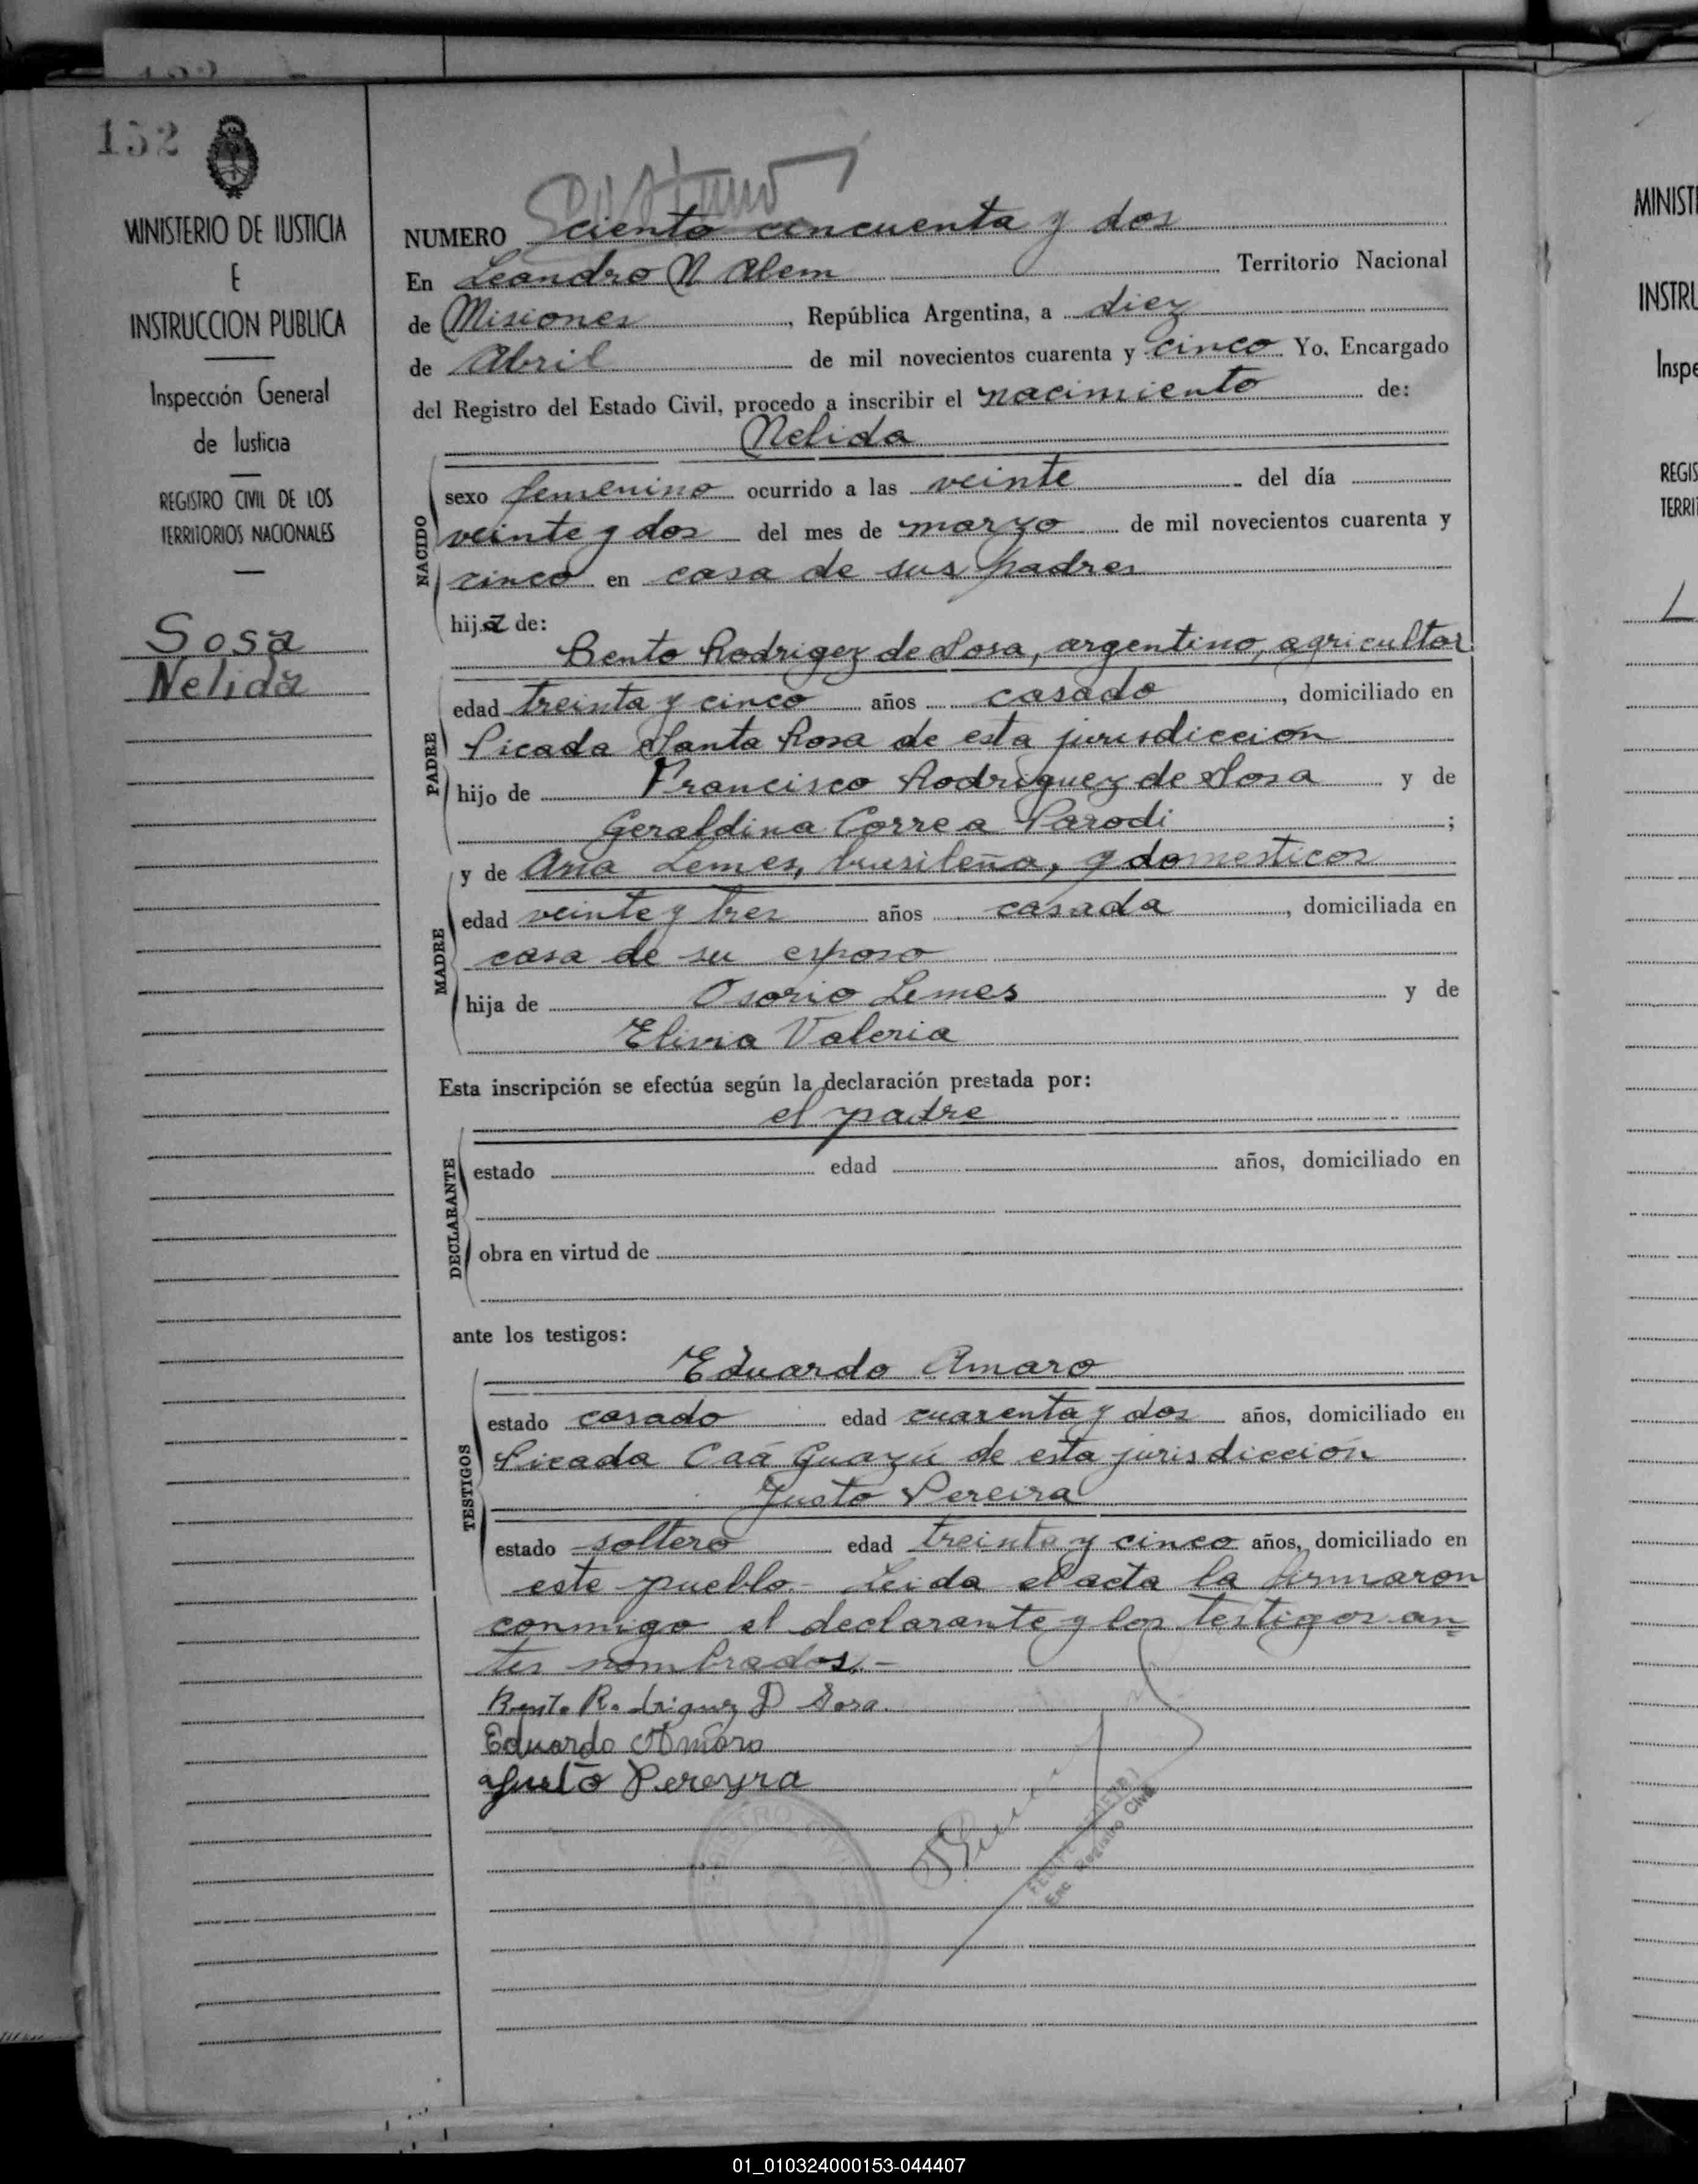 152
MINISTERIO DE JUSTICIA
E
INSTRUCCION PUBLICA
Inspección General
de Justicia
REGISTRO CIVIL DE LOS
TERRITORIOS NACIONALES
Sosa
Nelida
NUMERO ciento cincuenta y dos
En Leandro N Alem Territorio Nacional
de Misiones, República Argentina, a diez
de Abril de mil novecientos cuarenta y cinco Yo, Encargado
del Registro del Estado Civil, procedo a inscribir el nacimiento de:
Nelida
NACIDO
sexo femenino ocurrido a las veinte del día
veinte y dos del mes de marzo de mil novecientos cuarenta y
cinco en casa de sus padres
hija de:
Bento Rodrigez de Sosa, argentino, agricultor
PADRE
edad treinta y cinco años casado, domiciliado en
Picada Santa Rosa de esta jurisdiccion
hijo de Francisco Rodriguez de Sosa y de
Geraldina Correa Parodi;
y de Ana Lemes, brasileña, q domesticos
MADRE
edad veinte y tres años casada, domiciliada en
casa de su esposo
hija de Osorio Lemes y de
Elivia Valeria
Esta inscripción se efectúa según la declaración prestada por:
el padre
DECLARANTE
estado edad años, domiciliado en
obra en virtud de
ante los testigos:
Eduardo Amaro
TESTIGOS
estado casado edad cuarenta y dos años, domiciliado en
Picada Caá Guazú de esta jurisdicción
Justo Pereira
estado soltero edad treinta y cinco años, domiciliado en
este pueblo.- Leida el acta la firmaron
conmigo el declarante y los testigos an=
tes nombrados.-
Bento Rodriguez D Sosa.
Eduardo Amaro
Justo Pereyra
REGISTRO CIVIL
Enc Registro Civil
MINIST
INSTRU
Inspe
REGIS
TERRI
01_010324000153-044407